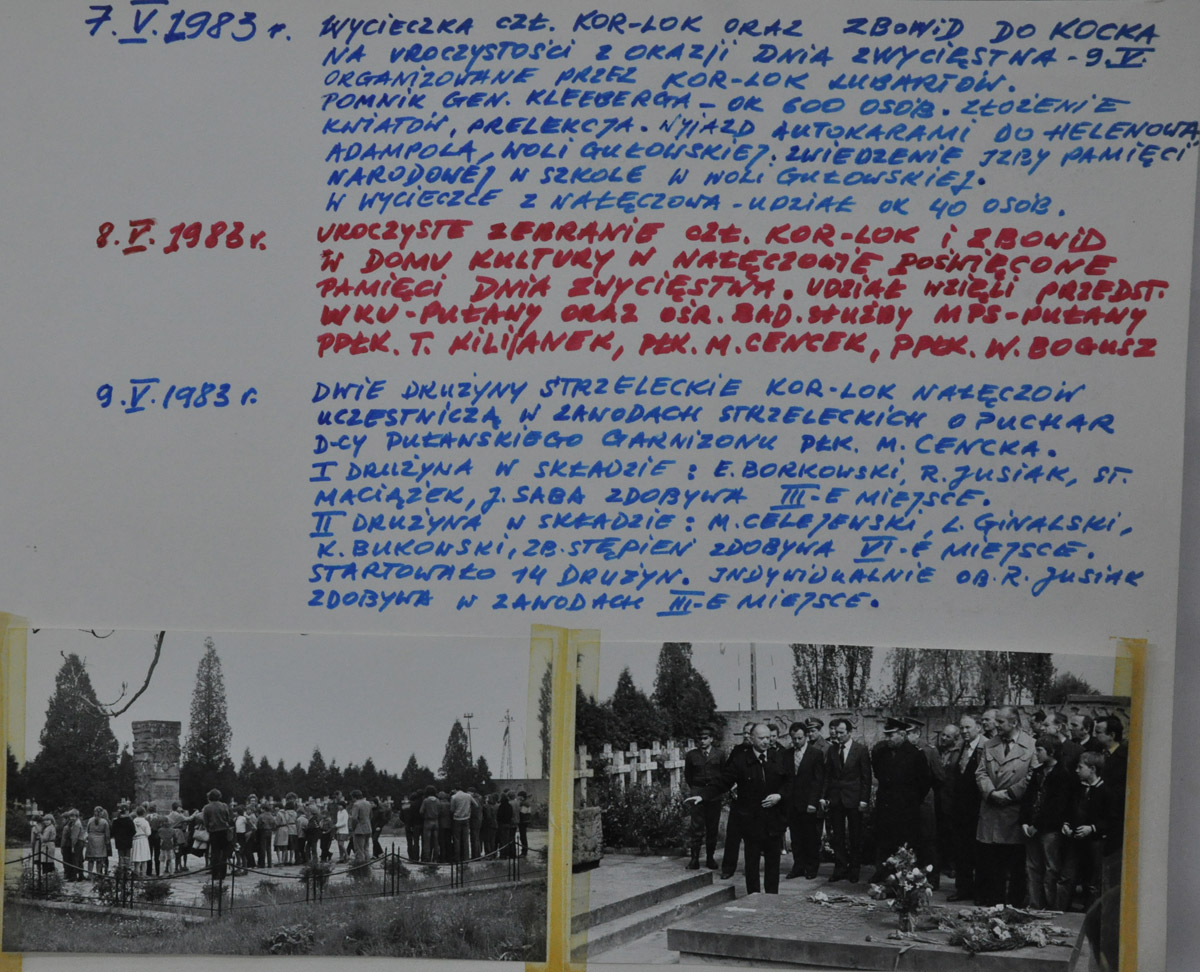 7.V.1983 r. WYCIECZKA CZŁ. KOR-LOK ORAZ ZBOWID DO KOCKA
NA UROCZYSTOŚCI Z OKAZJI DNIA ZWYCIĘSTWA - 9.V.
ORGANIZOWANE PRZEZ KOR-LOK LUBARTÓW.
POMNIK GEN. KLEEBERGA - OK 600 OSÓB. ZŁOŻENIE
KWIATÓW, PRELEKCJA. WYJAZD AUTOKARAMI DO HELENOWA,
ADAMPOLA, WOLI GUŁOWSKIEJ. ZWIEDZENIE IZBY PAMIĘCI
NARODOWEJ W SZKOLE W WOLI GUŁOWSKIEJ.
W WYCIECZCE Z NAŁĘCZOWA - UDZIAŁ OK 40 OSÓB.
8.V.1983 r. UROCZYSTE ZEBRANIE CZŁ. KOR-LOK I ZBOWID
W DOMU KULTURY W NAŁĘCZOWIE POŚWIĘCONE
PAMIĘCI DNIA ZWYCIĘSTWA. UDZIAŁ WZIĘLI PRZEDST.
WKU-PUŁAWY ORAZ OŚR. BAD. SŁUŻBY MPS-PUŁAWY
PPŁK. T. KILIJANEK, PŁK. M. CENCEK, PPŁK. W. BOGUSZ
9.V.1983 r. DWIE DRUŻYNY STRZELECKIE KOR-LOK NAŁĘCZÓW
UCZESTNICZĄ W ZAWODACH STRZELECKICH O PUCHAR
D-CY PUŁAWSKIEGO GARNIZONU PŁK. M. CENCKA.
I DRUŻYNA W SKŁADZIE: E. BORKOWSKI, R. JUSIAK, ST.
MACIĄŻEK, J. SABA ZDOBYWA III-E MIEJSCE.
II DRUŻYNA W SKŁADZIE: M. CELEJEWSKI, L. GINALSKI,
K. BUKOWSKI, ZB. STĘPIEŃ ZDOBYWA VI-E MIEJSCE.
STARTOWAŁO 14 DRUŻYN. INDYWIDUALNIE OB. R. JUSIAK
ZDOBYWA W ZAWODACH III-E MIEJSCE.